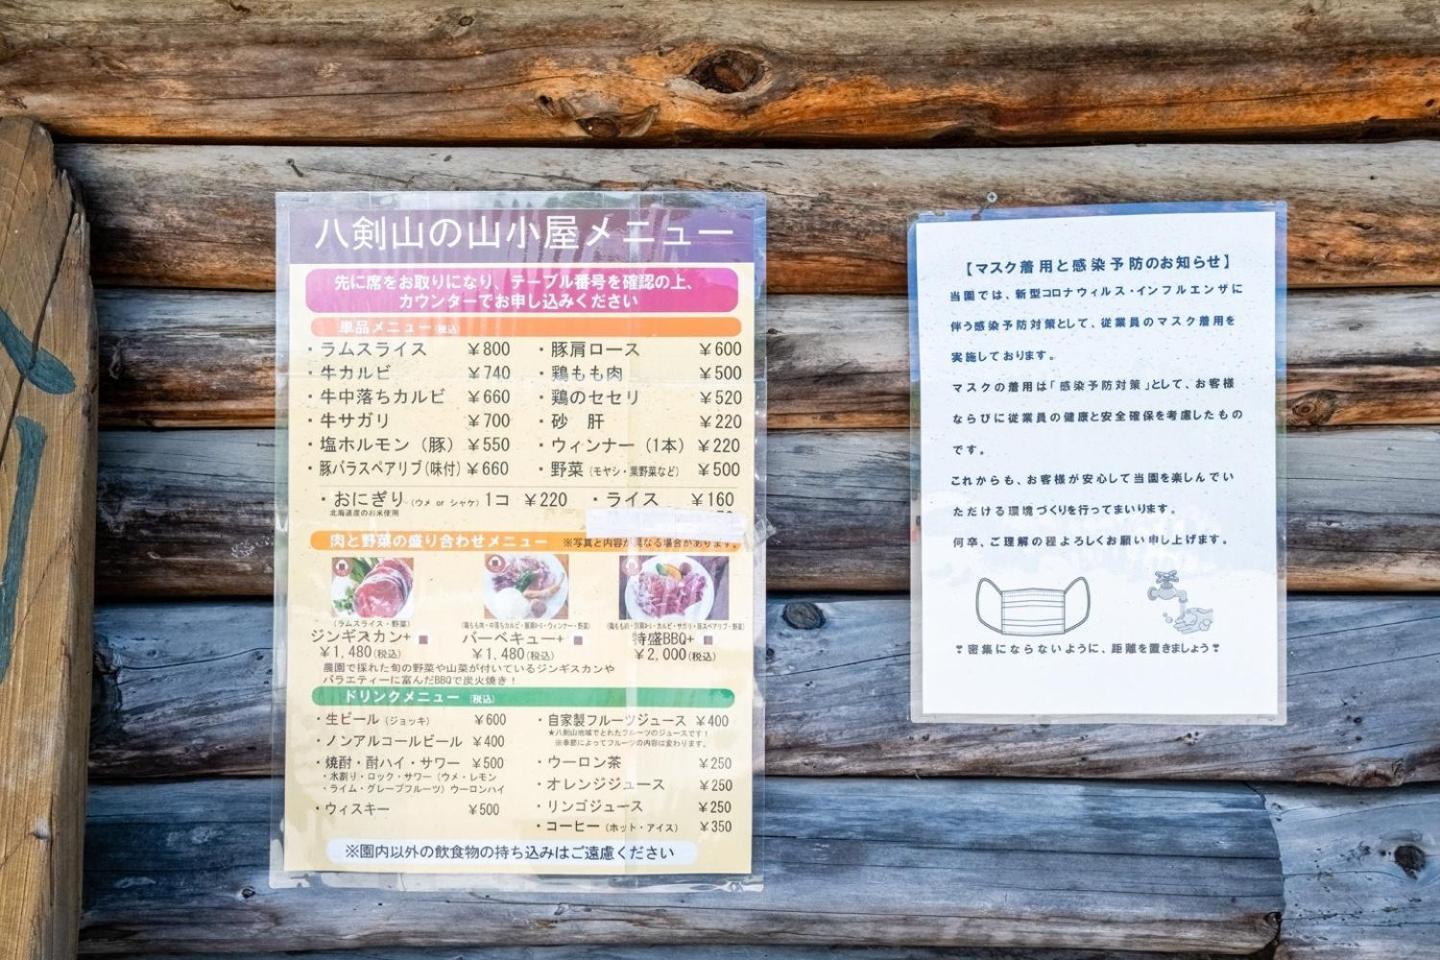 八剣山の山小屋メニュー
先に席をお取りになり、テーブル番号を確認の上、
カウンターでお申し込みください
単品メニュー(税込)
・ラムスライス ￥800
・牛カルビ ￥740
・牛中落ちカルビ ￥660
・牛サガリ ￥700
・塩ホルモン（豚） ￥550
・豚バラスペアリブ(味付) ￥660
・豚肩ロース ￥600
・鶏もも肉 ￥500
・鶏のセセリ ￥520
・砂 肝 ￥220
・ウィンナー（1本） ￥220
・野菜（モヤシ・葉野菜など） ￥500
・おにぎり（ウメ or シャケ）1コ ￥220 ・ライス ￥160
北海道産のお米使用
肉と野菜の盛り合わせメニュー ※写真と内容が異なる場合があります。
(ラムスライス・野菜)
ジンギスカン+
￥1,480(税込)
バーベキュー+
￥1,480(税込)
特盛BBQ+
￥2,000(税込)
農園で採れた旬の野菜や山菜が付いているジンギスカンや
バラエティーに富んだBBQで炭火焼き！
ドリンクメニュー (税込)
・生ビール（ジョッキ） ￥600
・ノンアルコールビール ￥400
・焼酎・酎ハイ・サワー ￥500
・水割り・ロック・サワー（ウメ・レモン
・ライム・グレープフルーツ）ウーロンハイ
・ウィスキー ￥500
・自家製フルーツジュース ￥400
★八剣山地域でとれたフルーツのジュースです！
※季節によってフルーツの内容は変わります。
・ウーロン茶 ￥250
・オレンジジュース ￥250
・リンゴジュース ￥250
・コーヒー（ホット・アイス） ￥350
※園内以外の飲食物の持ち込みはご遠慮ください
【マスク着用と感染予防のお知らせ】
当園では、新型コロナウィルス・インフルエンザに
伴う感染予防対策として、従業員のマスク着用を
実施しております。
マスクの着用は「感染予防対策」として、お客様
ならびに従業員の健康と安全確保を考慮したもの
です。
これからも、お客様が安心して当園を楽しんでい
ただける環境づくりを行ってまいります。
何卒、ご理解の程よろしくお願い申し上げます。
❣密集にならないように、距離を置きましょう❣